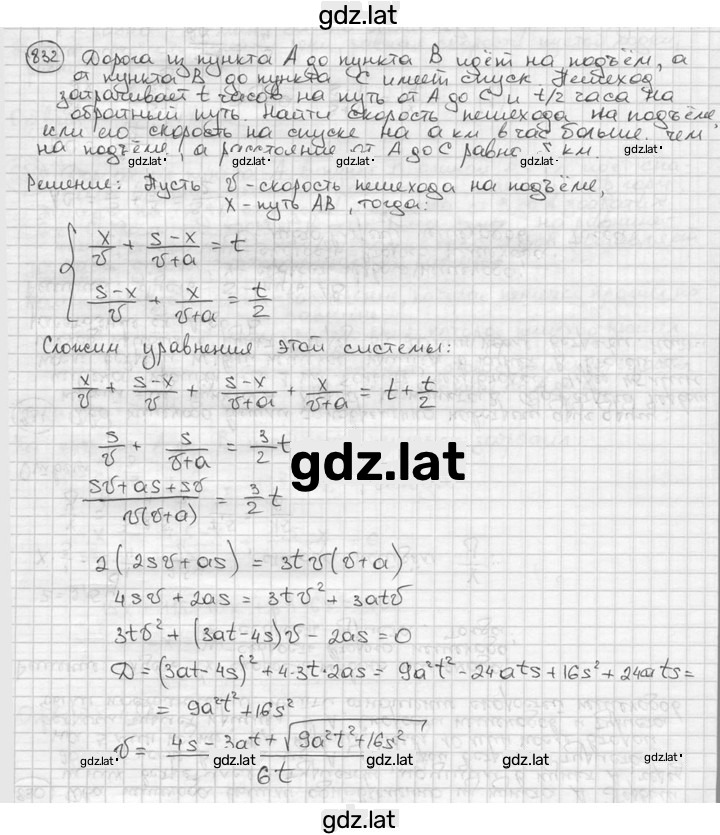 gdz.lat
832 Дорога из пункта A до пункта B идёт на подъём, а
от пункта B до пункта C имеет спуск. Пешеход
затрачивает t часов на путь от A до C и t/2 часа на
обратный путь. Найти скорость пешехода на подъёме,
если его скорость на спуске на a км в час больше, чем
на подъёме, а расстояние от A до C равно s км.
gdz.lat gdz.lat gdz.lat gdz.lat
Решение: Пусть v - скорость пешехода на подъёме,
x - путь AB, тогда:
{ x/v + (s-x)/(v+a) = t
(s-x)/v + x/(v+a) = t/2
Сложим уравнения этой системы:
x/v + (s-x)/v + (s-x)/(v+a) + x/(v+a) = t + t/2
s/v + s/(v+a) = 3/2 t
gdz.lat
(sv+as+sv)/(v(v+a)) = 3/2 t
2(2sv+as) = 3tv(v+a)
4sv + 2as = 3tv² + 3atv
3tv² + (3at-4s)v - 2as = 0
D = (3at-4s)² + 4·3t·2as = 9a²t² - 24ats + 16s² + 24ats =
= 9a²t² + 16s²
v = (4s - 3at + √(9a²t² + 16s²))/(6t)
gdz.lat gdz.lat gdz.lat gdz.lat gdz.lat
gdz.lat